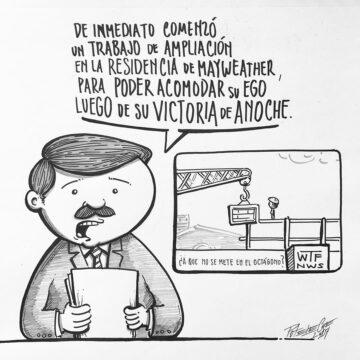 DE INMEDIATO COMENZÓ
UN TRABAJO DE AMPLIACIÓN
EN LA RESIDENCIA DE MAYWEATHER,
PARA PODER ACOMODAR SU EGO
LUEGO DE SU VICTORIA DE ANOCHE.
¿A QUE NO SE METE EN EL OCTÁGONO?
WTF
NWS